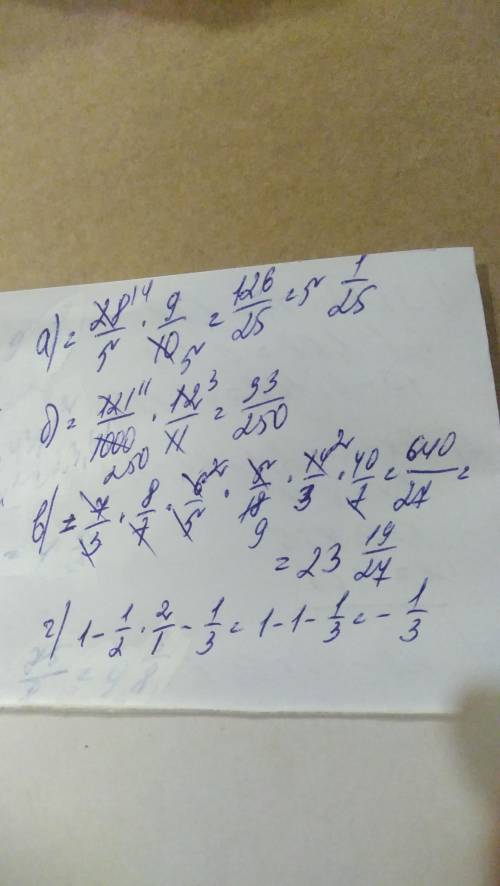 а) = 28^14/5 · 9/10 5 = 126/25 = 5 1/25
б) = 121^11/1000 250 · 12^3/11 = 33/250
в) = 7/3 · 8/7 · 6^2/5 · 5/18 9 · 14^2/3 · 40/7 = 640/27 =
= 23 19/27
г) 1 - 1/2 · 2/1 - 1/3 = 1 - 1 - 1/3 = - 1/3